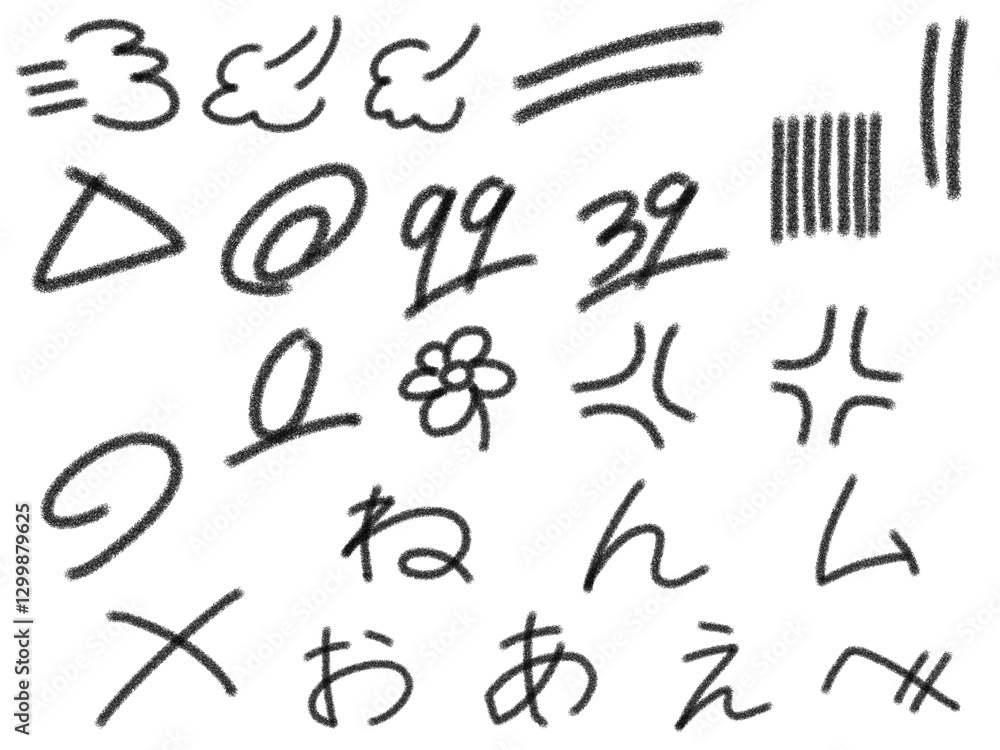 @ 99 39
ね ん ム
× お あ え べ
Adobe Stock | #1299879625